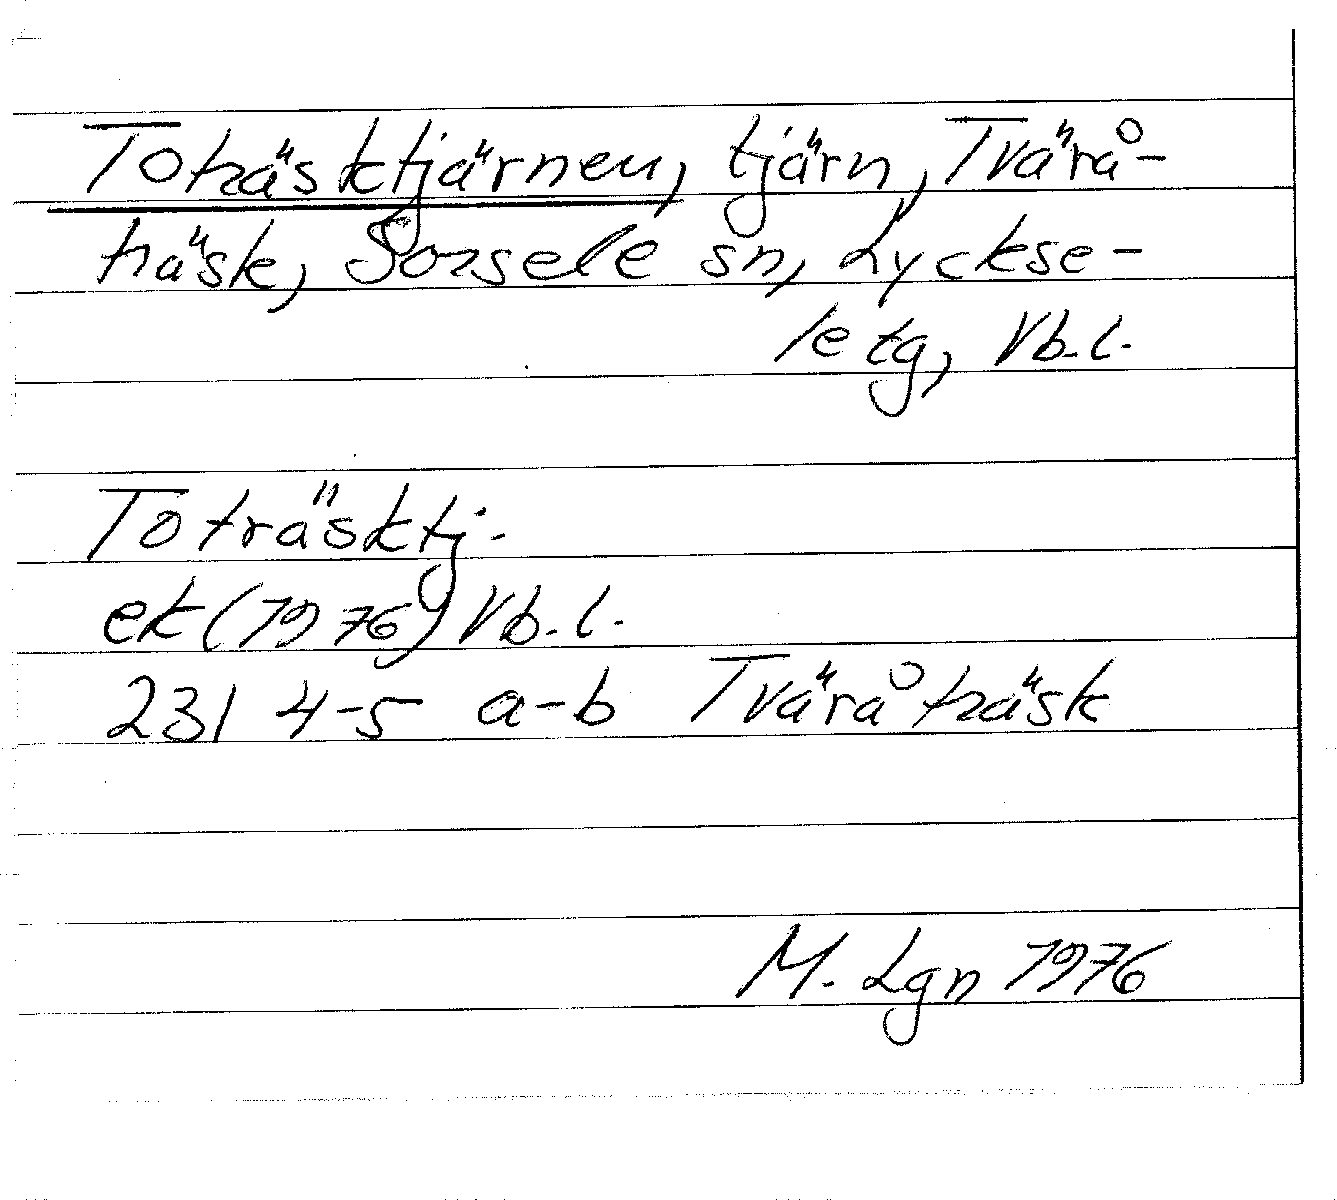 Toträsktjärnen, tjärn, Tvärå-
träsk, Sorsele sn, Lyckse-
le tg, Vb. l.
Toträsktj.
ek (1976) Vb. l.
231 4-5 a-b Tväråträsk
M. Lgn 1976